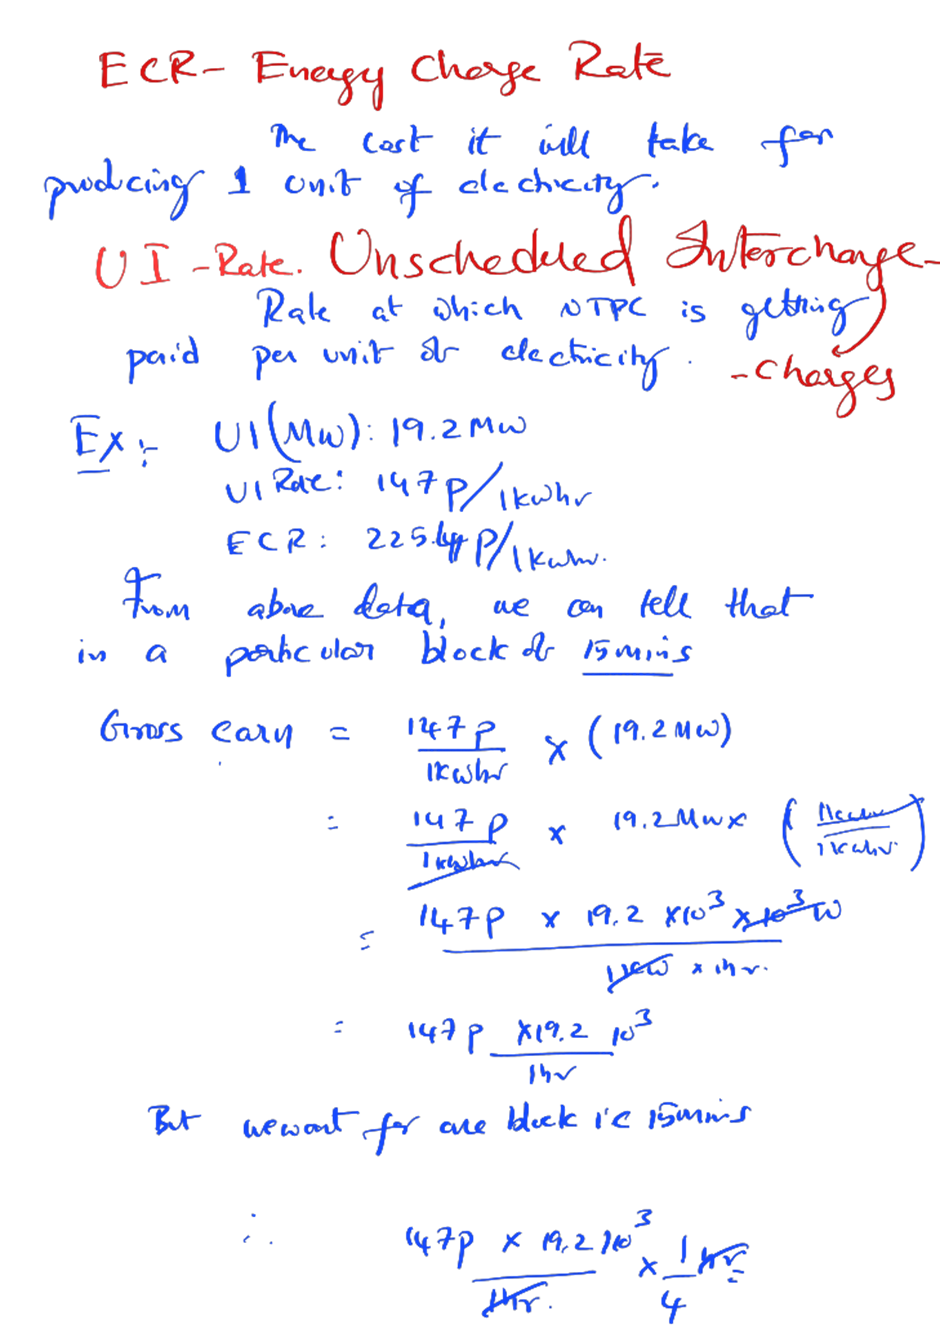 ECR- Energy Charge Rate
The cost it will take for
producing 1 unit of electricity.
UI -Rate. Unscheduled Interchange-
Rate at which NTPC is getting
paid per unit of electricity. -Charges
Ex:- UI(MW): 19.2MW
UI Rate: 147P/1kwhr
ECR: 225. P/1kwhr.
From above data, we can tell that
in a particular block of 15mins
Gross earn = 147P/1kwhr × (19.2MW)
= 147P/1kwhr × 19.2MW× (1kwhr/1kwhr)
= 147P × 19.2 ×10³ ×10³W / 1kW × 1hr.
= 147P ×19.2 10³ / 1hr
But we want for one block i.e 15mins
∴ 147P × 19.2 ×10³ / 1hr. × 1/4 hr